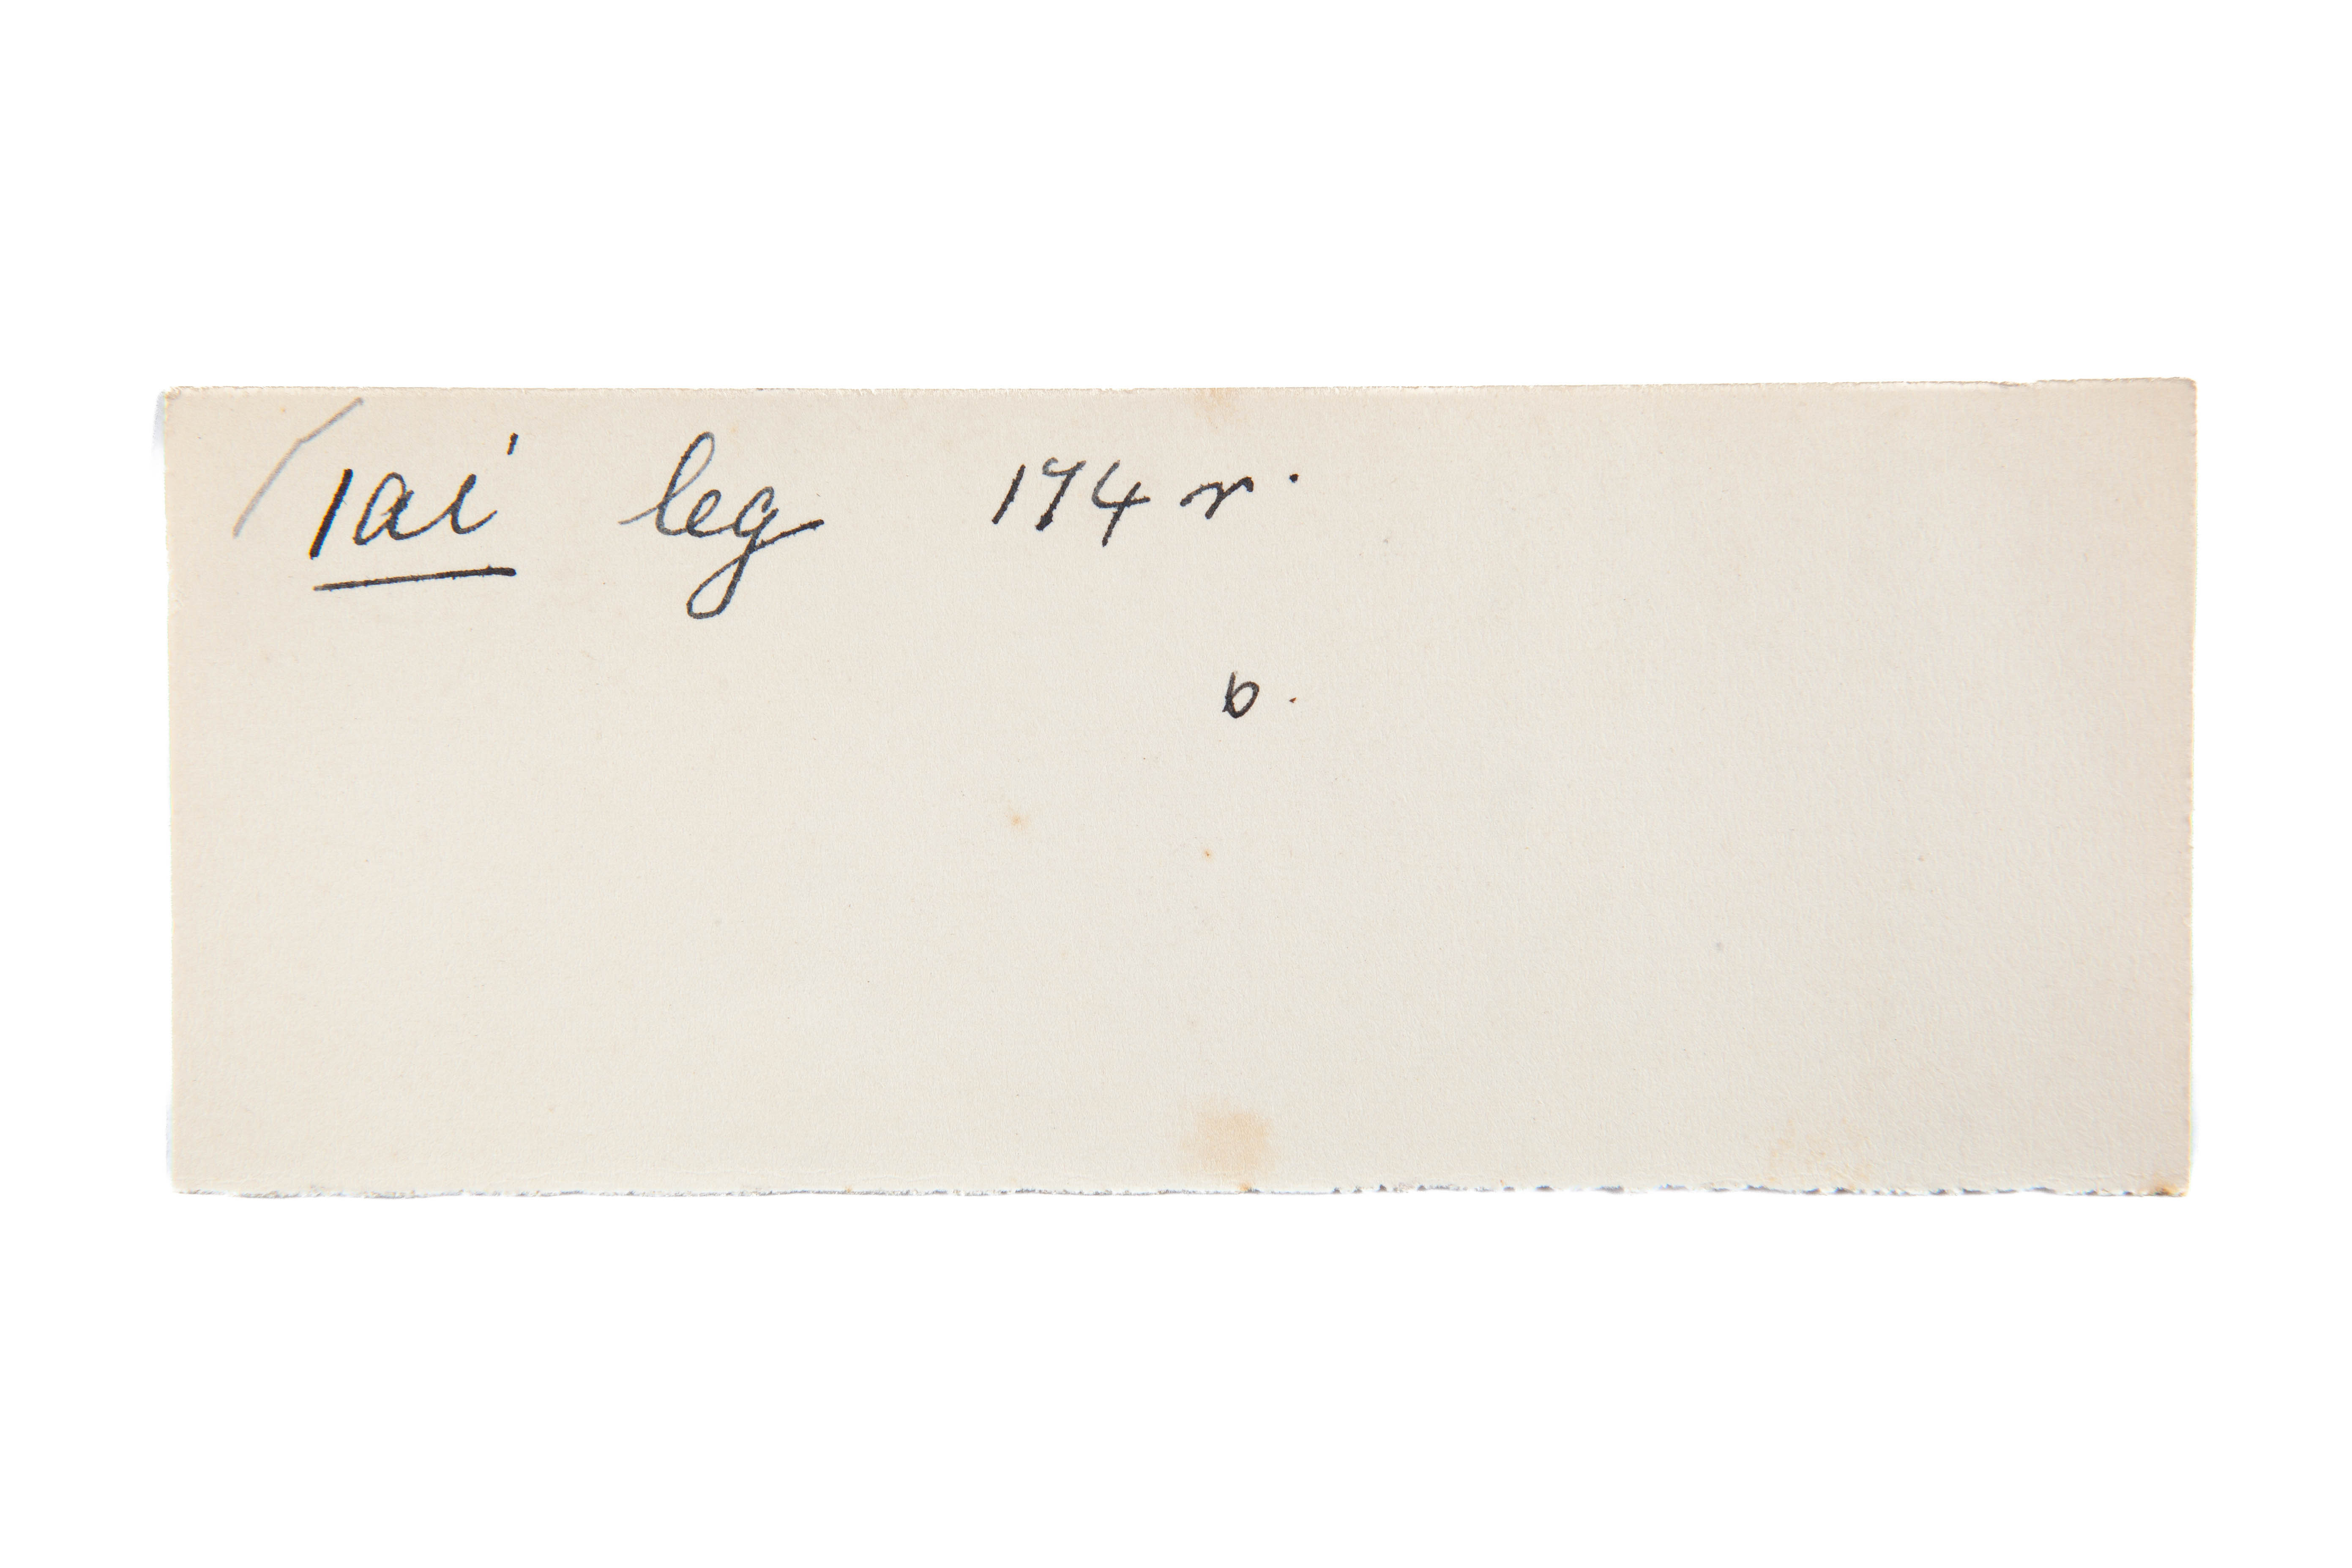 iai leg 174 r.
b.